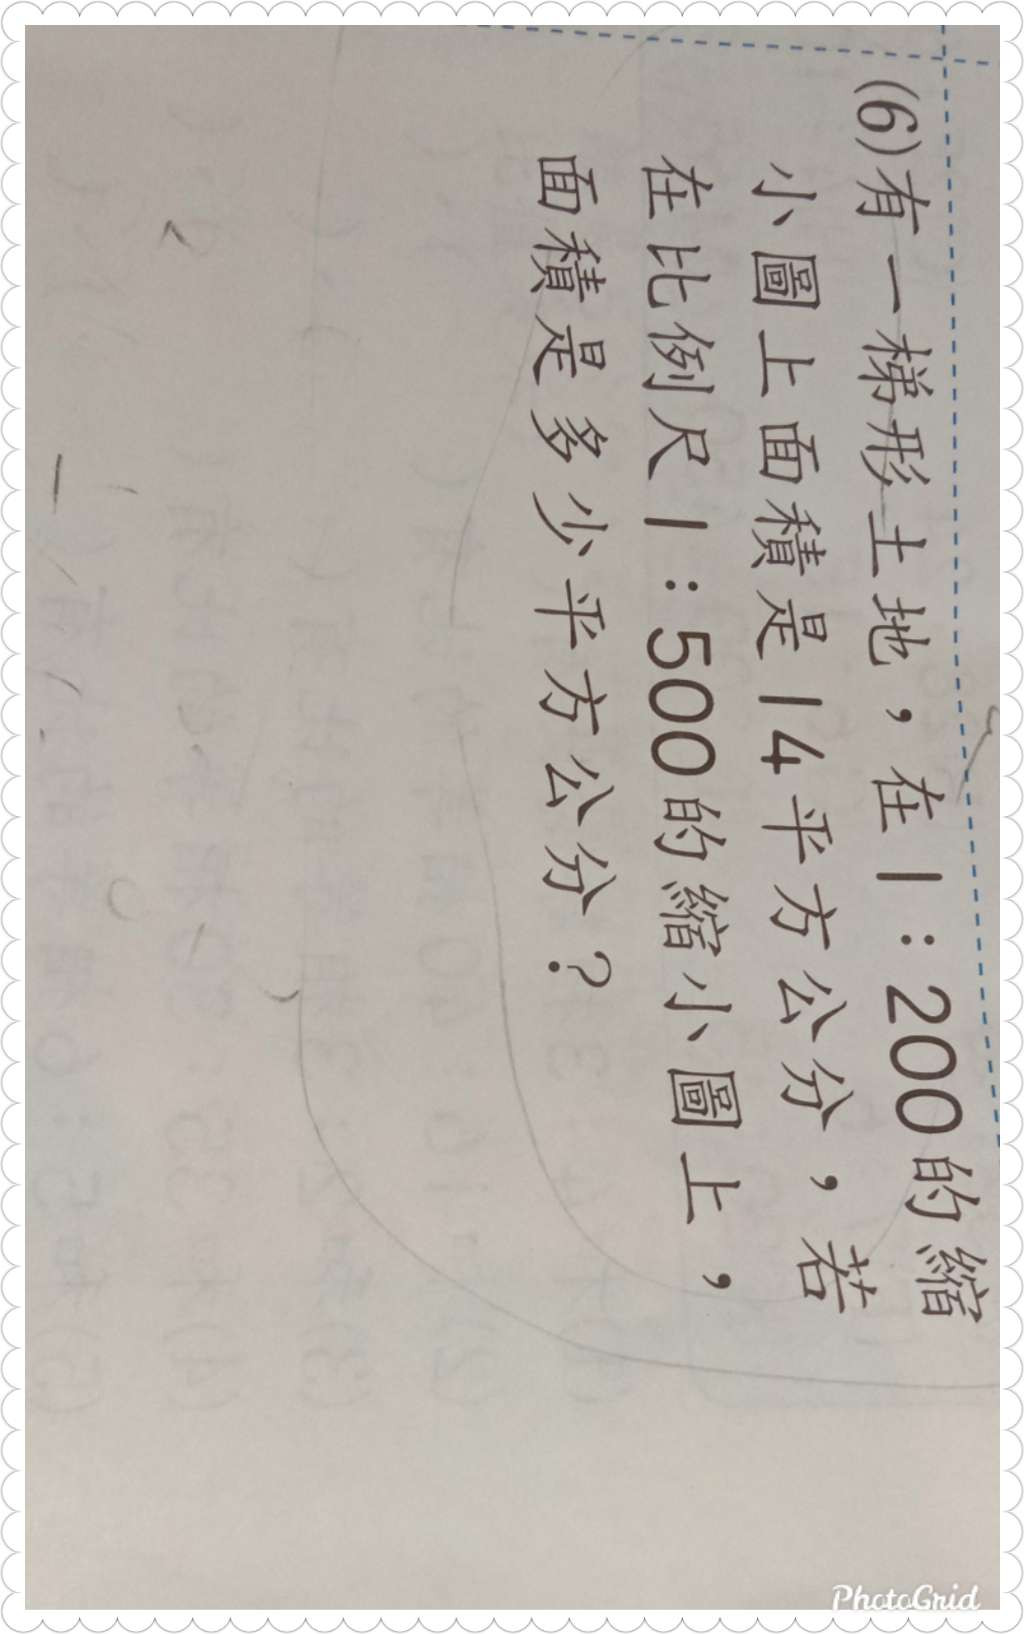 (6)有一梯形土地，在1：200的縮
小圖上面積是14平方公分，若
在比例尺1：500的縮小圖上，
面積是多少平方公分？
PhotoGrid